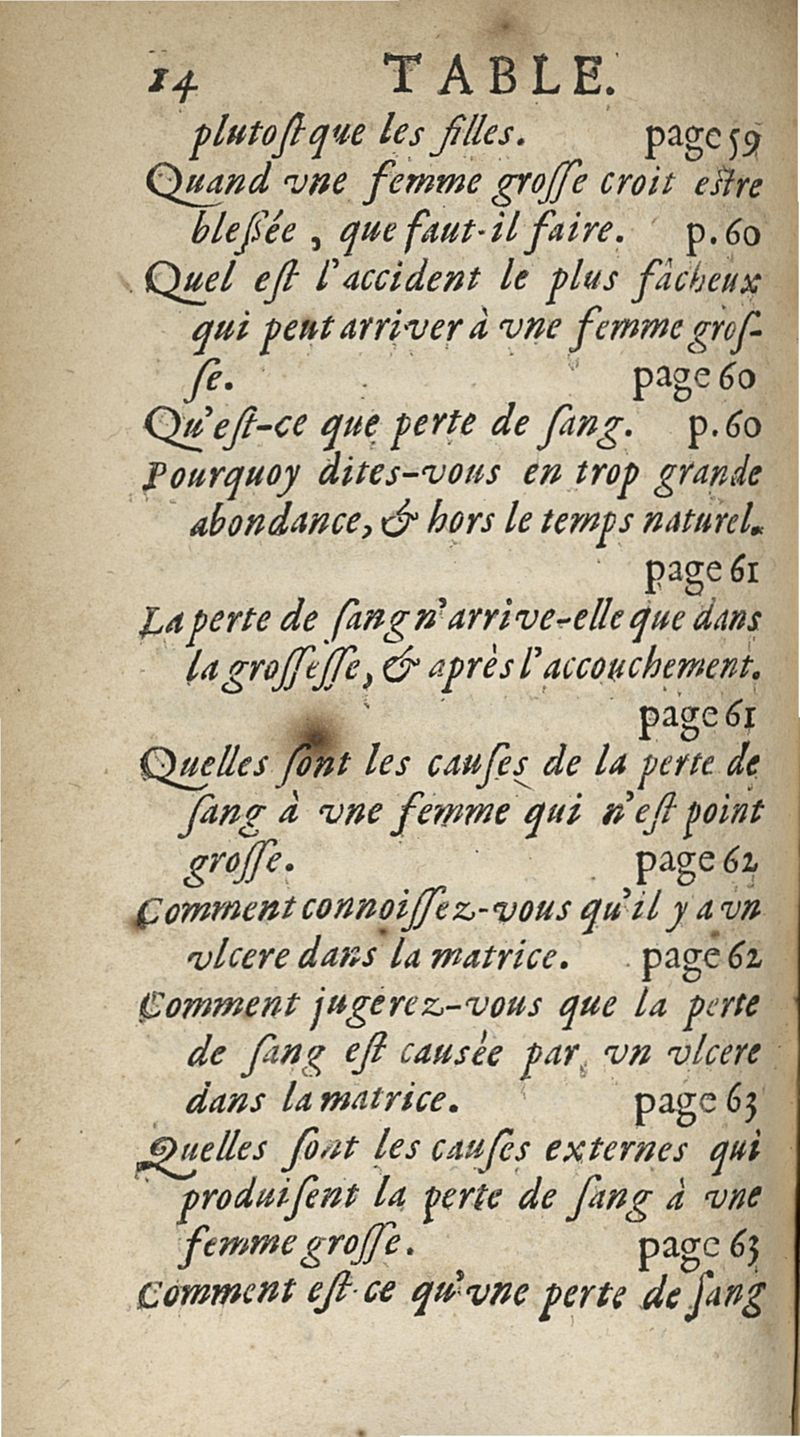 14 TABLE.
plutoſt que les filles. page 59
Quand vne femme groſſe croit eſtre
bleßée, que faut-il faire. p. 60
Quel eſt l'accident le plus fâcheux
qui peut arriver à vne femme groſ-
ſe. page 60
Qu'eſt-ce que perte de ſang. p. 60
Pourquoy dites-vous en trop grande
abondance, & hors le temps naturel.
page 61
La perte de ſang n'arrive-elle que dans
la groſſeſſe, & après l'accouchement.
page 61
Quelles ſont les cauſes de la perte de
ſang à vne femme qui n'eſt point
groſſe. page 62
Comment connoiſſez-vous qu'il y a vn
vlcere dans la matrice. page 62
Comment jugerez-vous que la perte
de ſang eſt causèe par vn vlcere
dans la matrice. page 63
Quelles ſont les cauſes externes qui
produiſent la perte de ſang à vne
femme groſſe. page 63
Comment eſt-ce qu'vne perte de ſang